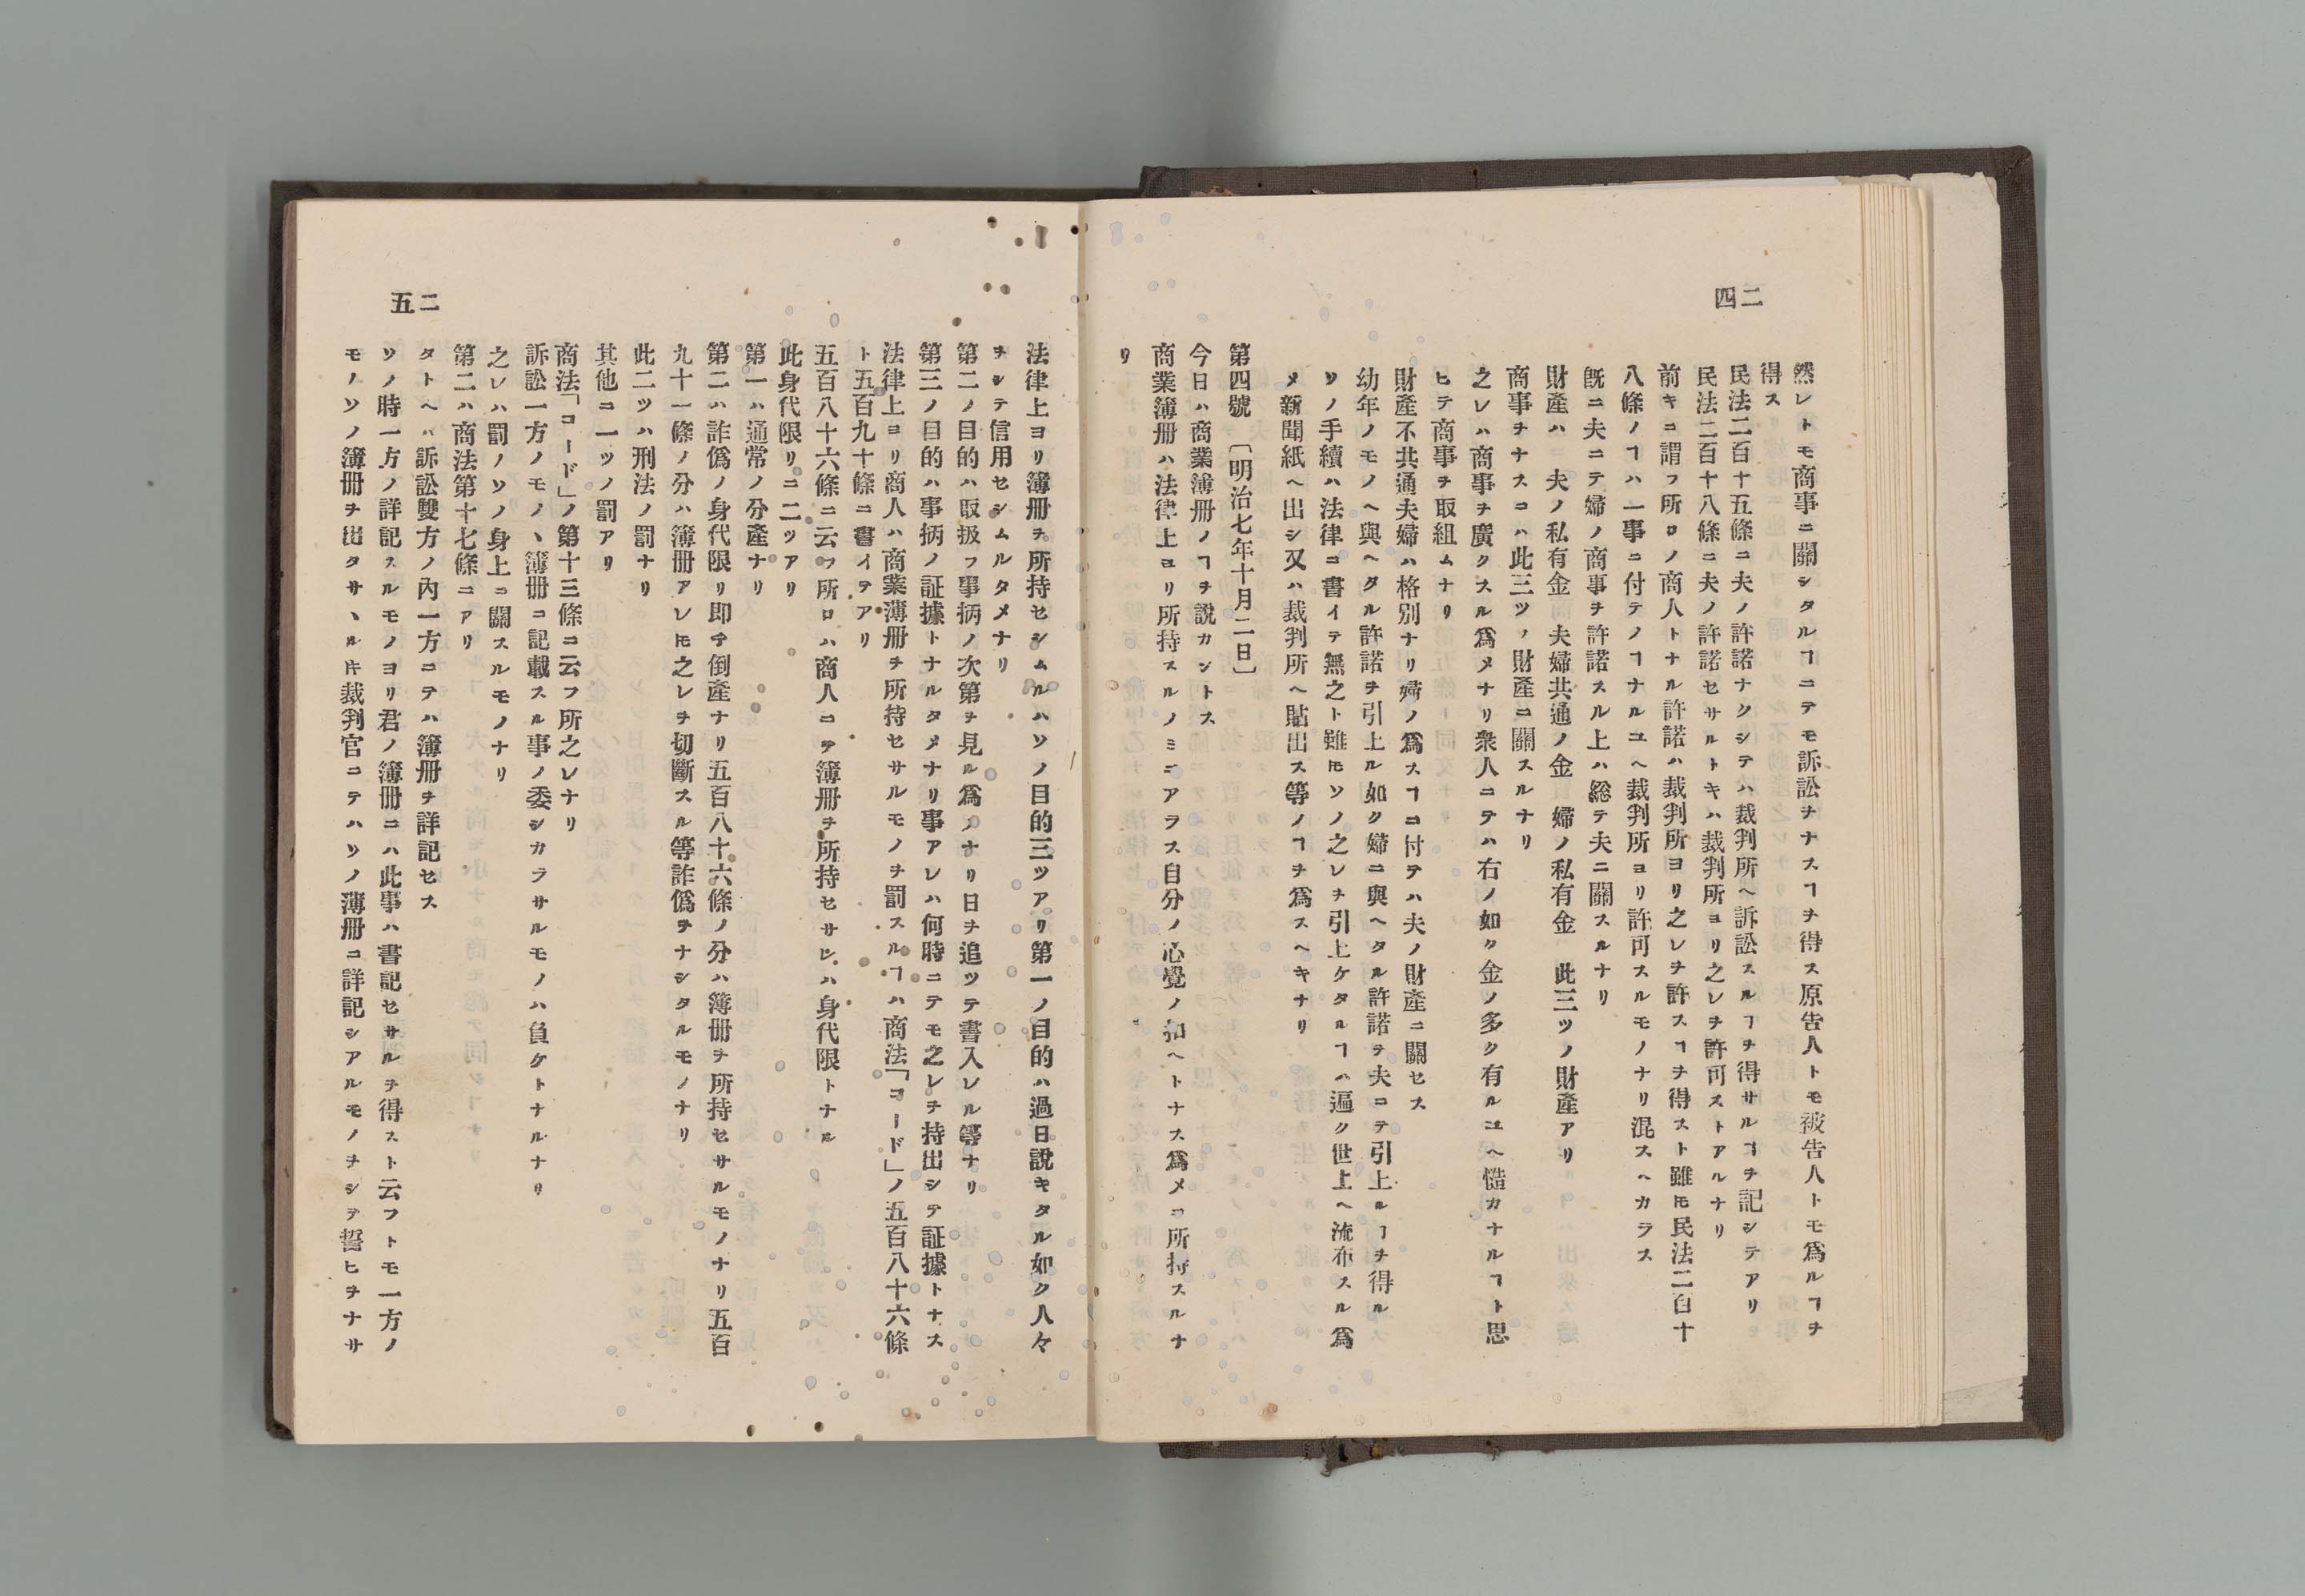 二四
然レトモ商事ニ關シタルヿニテモ訴訟ヲナスヿヲ得ス原告人トモ被告人トモ爲ルヿヲ
得ス
民法二百十五條ニ夫ノ許諾ナクシテハ裁判所ヘ訴訟スルヿヲ得サルヿヲ記シテアリ
民法二百十八條ニ夫ノ許諾セサルトキハ裁判所ヨリ之レヲ許可ストアルナリ
前キニ謂フ所ロノ商人トナル許諾ハ裁判所ヨリ之レヲ許スヿヲ得スト雖𪜈民法二百十
八條ノヿハ一事ニ付テノヿナルユヘ裁判所ヨリ許可スルモノナリ混スヘカラス
既ニ夫ニテ婦ノ商事ヲ許諾スル上ハ総テ夫ニ關スルナリ
財產ハ　夫ノ私有金　夫婦共通ノ金　婦ノ私有金　此三ツノ財產アリ
商事ヲナスニハ此三ツノ財產ニ關スルナリ
之レハ商事ヲ廣クスル爲メナリ衆人ニテハ右ノ如ク金ノ多ク有ルユヘ慥カナルヿト思
ヒテ商事ヲ取組ムナリ
財產不共通夫婦ハ格別ナリ婦ノ爲スヿニ付テハ夫ノ財產ニ關セス
幼年ノモノヘ與ヘタル許諾ヲ引上ル如ク婦ニ與ヘタル許諾ヲ夫ニテ引上ルヿヲ得ル
ソノ手續ハ法律ニ書イテ無之ト雖𪜈ソノ之レヲ引上ケタルヿハ遍ク世上ヘ流布スル爲
メ新聞紙ヘ出シ又ハ裁判所ヘ貼出ス等ノヿヲ爲スヘキナリ
第四號　〔明治七年十月二日〕
今日ハ商業簿册ノヿヲ說カントス
商業簿册ハ法律上ヨリ所持スルノミニアラス自分ノ心覺ノ扣ヘトナス爲メニ所持スルナ
リ
二五
法律上ヨリ簿册ヲ所持セシムルハソノ目的三ツアリ第一ノ目的ハ過日說キタル如ク人々
ヲシテ信用セシムルタメナリ
第二ノ目的ハ取扱フ事柄ノ次第ヲ見ル爲メナリ日ヲ追ツテ書入レル等ナリ
第三ノ目的ハ事柄ノ証據トナルタメナリ事アレハ何時ニテモ之レヲ持出シテ証據トナス
法律上ヨリ商人ハ商業薄册ヲ所持セサルモノヲ罰スルヿハ商法「コード」ノ五百八十六條
ト五百九十條ニ書イテアリ
五百八十六條ニ云フ所ロハ商人ニテ簿册ヲ所持セサレハ身代限トナル
此身代限リニ二ツアリ
第一ハ通常ノ分產ナリ
第二ハ詐僞ノ身代限リ即チ倒產ナリ五百八十六條ノ分ハ簿册ヲ所持セサルモノナリ五百
九十一條ノ分ハ簿册アレ𪜈之レヲ切斷スル等詐僞ヲナシタルモノナリ
此二ツハ刑法ノ罰ナリ
其他ニ一ツノ罰アリ
商法「コード」ノ第十三條ニ云フ所之レナリ
訴訟一方ノモノヽ簿册ニ記載スル事ノ委シカラサルモノハ負ケトナルナリ
之レハ罰ノソノ身上ニ關スルモノナリ
第二ハ商法第十七條ニアリ
タトヘハ訴訟雙方ノ內一方ニテハ簿册ヲ詳記セス
ソノ時一方ノ詳記スルモノヨリ君ノ簿册ニハ此事ハ書記セサルヲ得スト云フトモ一方ノ
モノソノ簿册ヲ出タサヽル𪜈裁判官ニテハソノ薄册ニ詳記シアルモノヲシテ誓ヒヲナサ